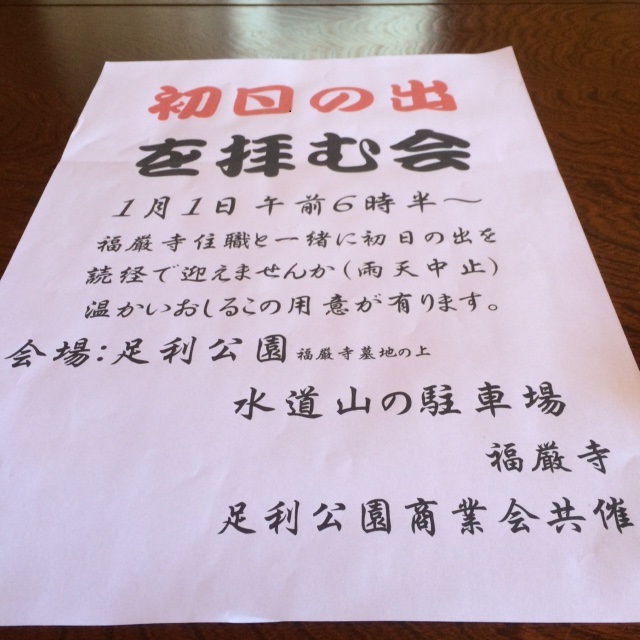 初日の出
を拝む会
1月1日午前6時半〜
福厳寺住職と一緒に初日の出を
読経で迎えませんか(雨天中止)
温かいおしるこの用意が有ります。
会場:足利公園 福厳寺墓地の上
水道山の駐車場
福厳寺
足利公園商業会共催